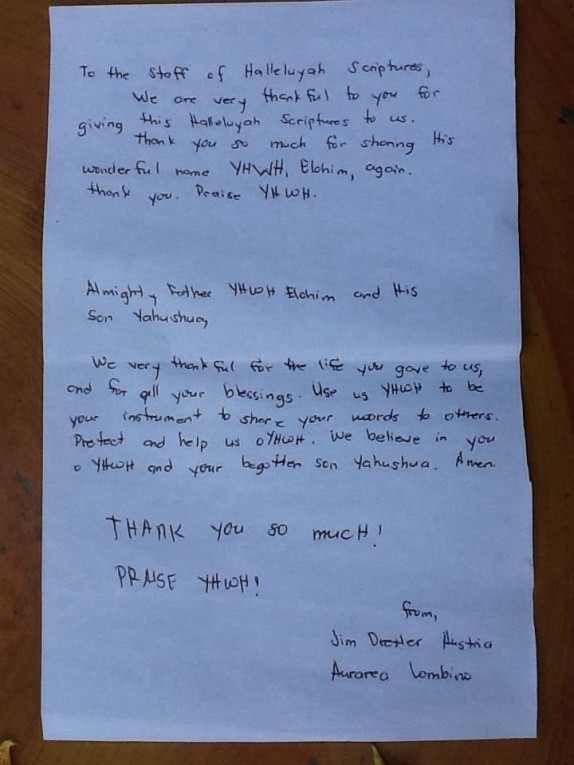 To the staff of Halleluyah Scriptures,
We are very thankful to you for
giving this Halleluyah Scriptures to us.
Thank you so much for sharing His
wonderful name YHWH, Elohim, again.
thank you. Praise YHWH.
Almighty Father YHWH Elohim and His
Son Yahushua,
We very thankful for the life you gave to us,
and for all your blessings. Use us YHWH to be
your instrument to share your words to others.
Protect and help us o YHWH. We believe in you
o YHWH and your begotten son Yahushua. Amen.
THANK you so much!
PRAISE YHWH!
from,
Jim Austria
Lombino